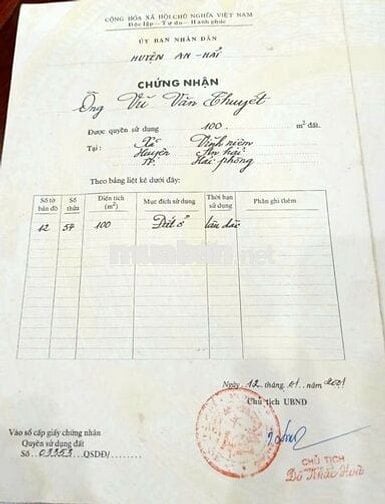 CỘNG HÒA XÃ HỘI CHỦ NGHĨA VIỆT NAM
Độc lập - Tự do - Hạnh phúc
ỦY BAN NHÂN DÂN
HUYỆN AN-HẢI
CHỨNG NHẬN
Ông Vũ Văn Thuyết
Được quyền sử dụng 100 m² đất.
Tại: Xã Vĩnh niệm
Huyện An hải
TP. Hải phòng
Theo bảng liệt kê dưới đây:
Số tờ bản đồ Số thửa Diện tích (m²) Mục đích sử dụng Thời hạn sử dụng Phần ghi thêm
12 57 100 Đất ở lâu dài
Ngày 12 tháng 01 năm 2001
Chủ tịch UBND
Vào sổ cấp giấy chứng nhận
Quyền sử dụng đất
Số 03353 QSDĐ/
CHỦ TỊCH
Đỗ Khắc